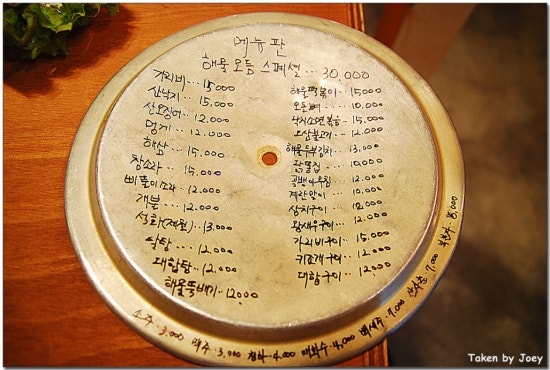 메뉴판
해물모듬 스페셜 .. 30,000
가리비 … 15,000
산낙지 … 15,000
산오징어 .. 12,000
멍게 … 12,000
해삼 … 15,000
참소라 … 15,000
삐뚤이소라 … 12,000
개불 … 12,000
석화(제철) … 13,000
알탕 … 12,000
대합탕 … 12,000
해물뚝배기 … 12,000
해물떡볶이 … 15,000
오돌뼈 … 10,000
낙지소면볶음 .. 15,000
오삼불고기 .. 12,000
해물두부김치 .. 13,000
닭똥집 … 10,000
골뱅이무침 … 12,000
계란말이 … 10,000
삼치구이 … 12,000
왕새우구이 … 12,000
가리비구이 … 15,000
키조개구이 … 12,000
대합구이 … 12,000
소주 · 3,000 맥주 · 3,000 청하 · 4,000 매화수 · 4,000 백세주 · 7,000 산사춘 · 7,000 복분자 · 8,000
Taken by Joey